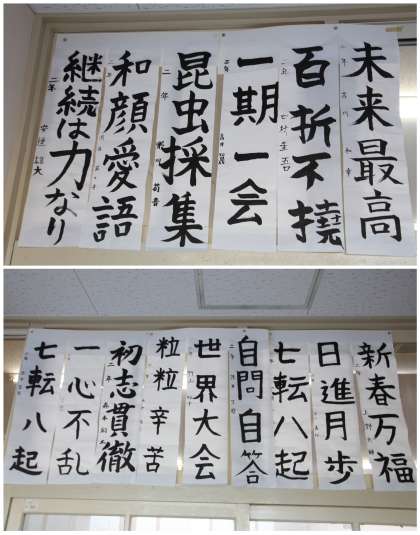 未来最高
百折不撓
一期一会
昆虫採集
二年
和顔愛語
継続は力なり
二年
新春万福
日進月歩
七転八起
自問自答
世界大会
粒粒辛苦
初志貫徹
一心不乱
七転八起